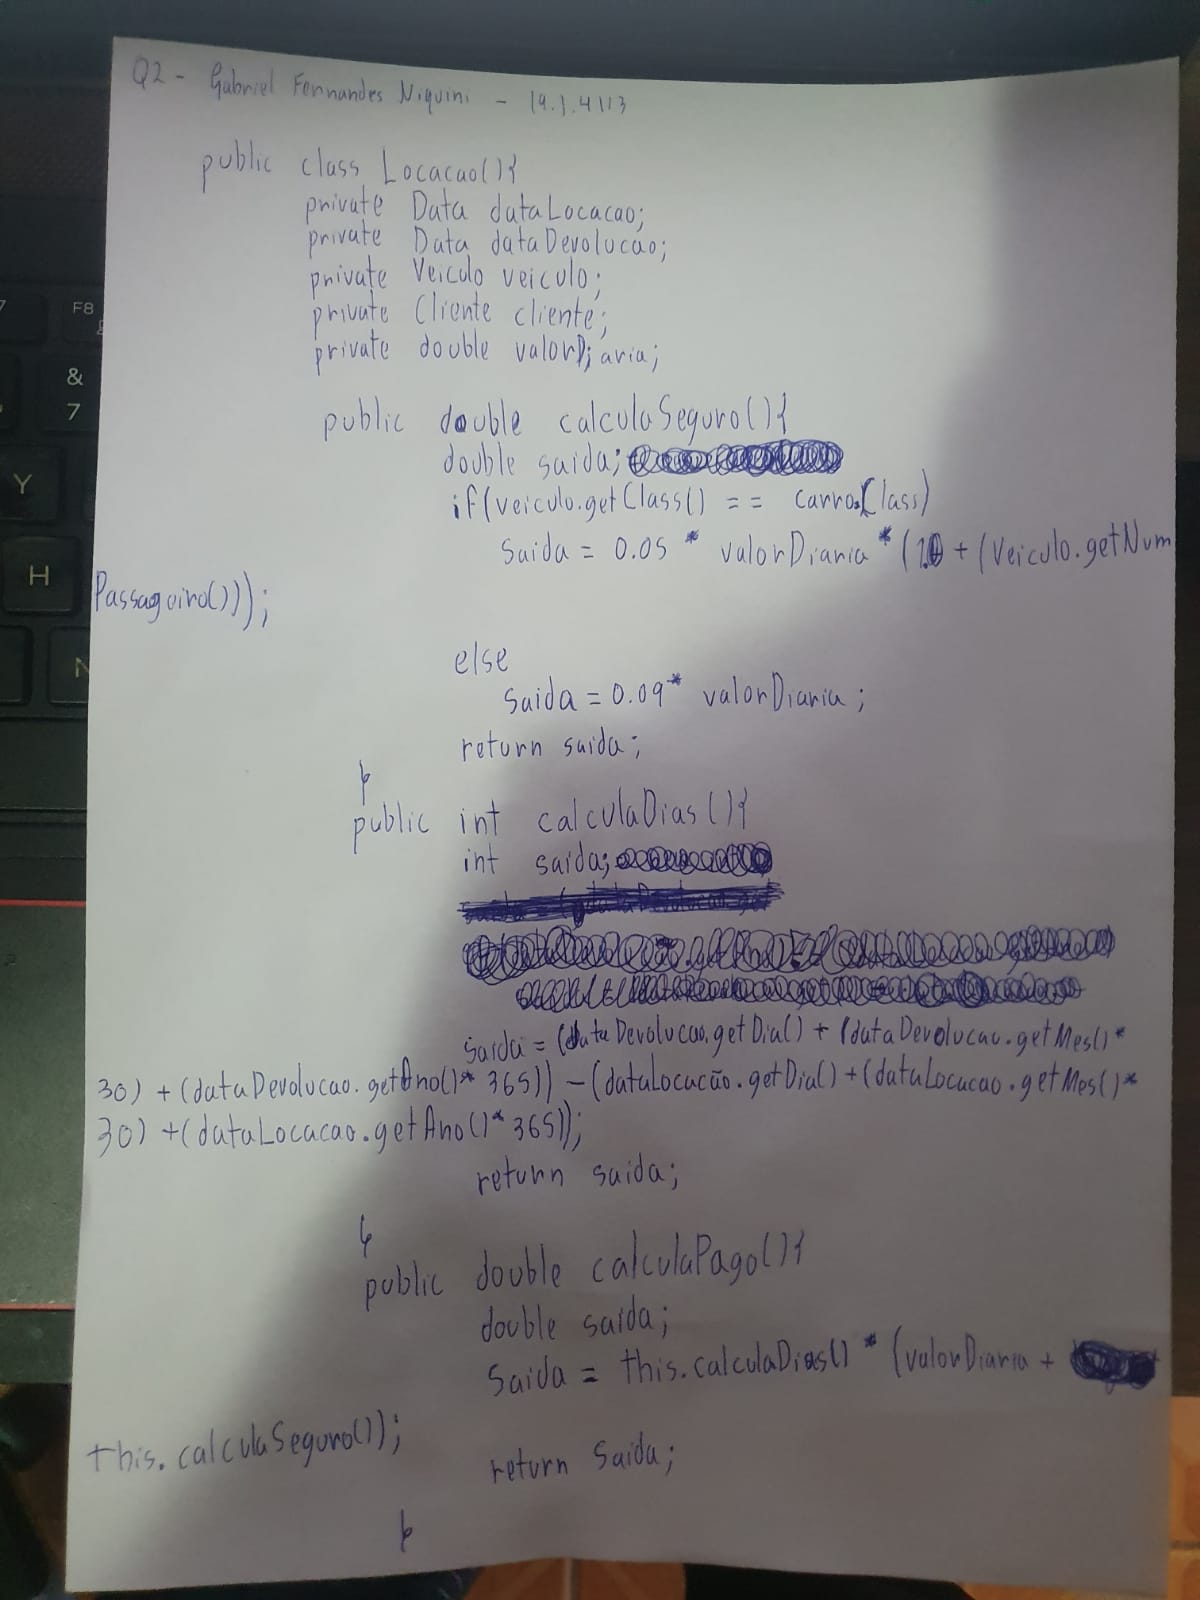 Q2 - Gabriel Fernandes Niquini - 19.1.4113
public class Locacao(){
private Data dataLocacao;
private Data dataDevolucao;
private Veiculo veiculo;
private Cliente cliente;
private double valorDiaria;
public double calculaSeguro(){
double saida;
if(veiculo.getClass() == carro.Class)
Saida = 0.05 * valorDiaria * (1.0 + (Veiculo.getNum
Passageiro()));
else
Saida = 0.09* valorDiaria;
return saida;
}
public int calculaDias(){
int saida;
Saida = (dataDevolucao.getDia() + (dataDevolucao.getMes()*
30) + (dataDevolucao.getAno()* 365)) - (dataLocacão.getDia() + (dataLocacao.getMes()*
30) + (dataLocacao.getAno()* 365));
return saida;
}
public double calculaPago(){
double saida;
Saida = this.calculaDias() * (valorDiaria +
this.calculaSeguro());
return Saida;
}
F8
&
7
Y
H
N